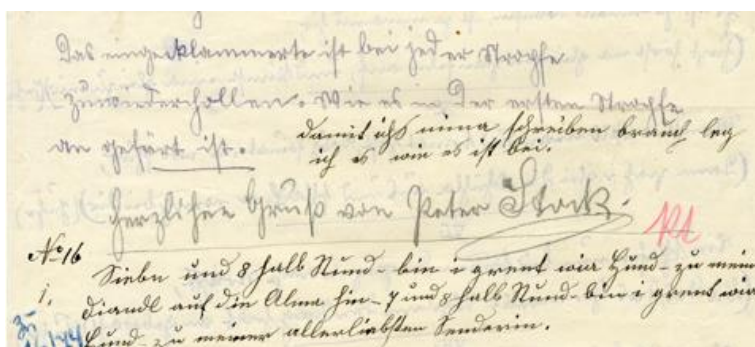 Das eingecklammerte ist bei jeder Stropfe
zuwiederhollen. Wie es in der ersten Stropfe
an gefärt ist.
damit ichs nima schreiben brauch leg
ich es wie es ist bei.
herzlichen Gruß von Peter Stock.
No 16
Siebn und 8 halb Stund- bin i grent wia Hund- zu mein
1. Diandl auf die Alma hin- 7 und 8 halb Stund- bin i grent wia
Hund- zu meiner allerliabsten Senderin.